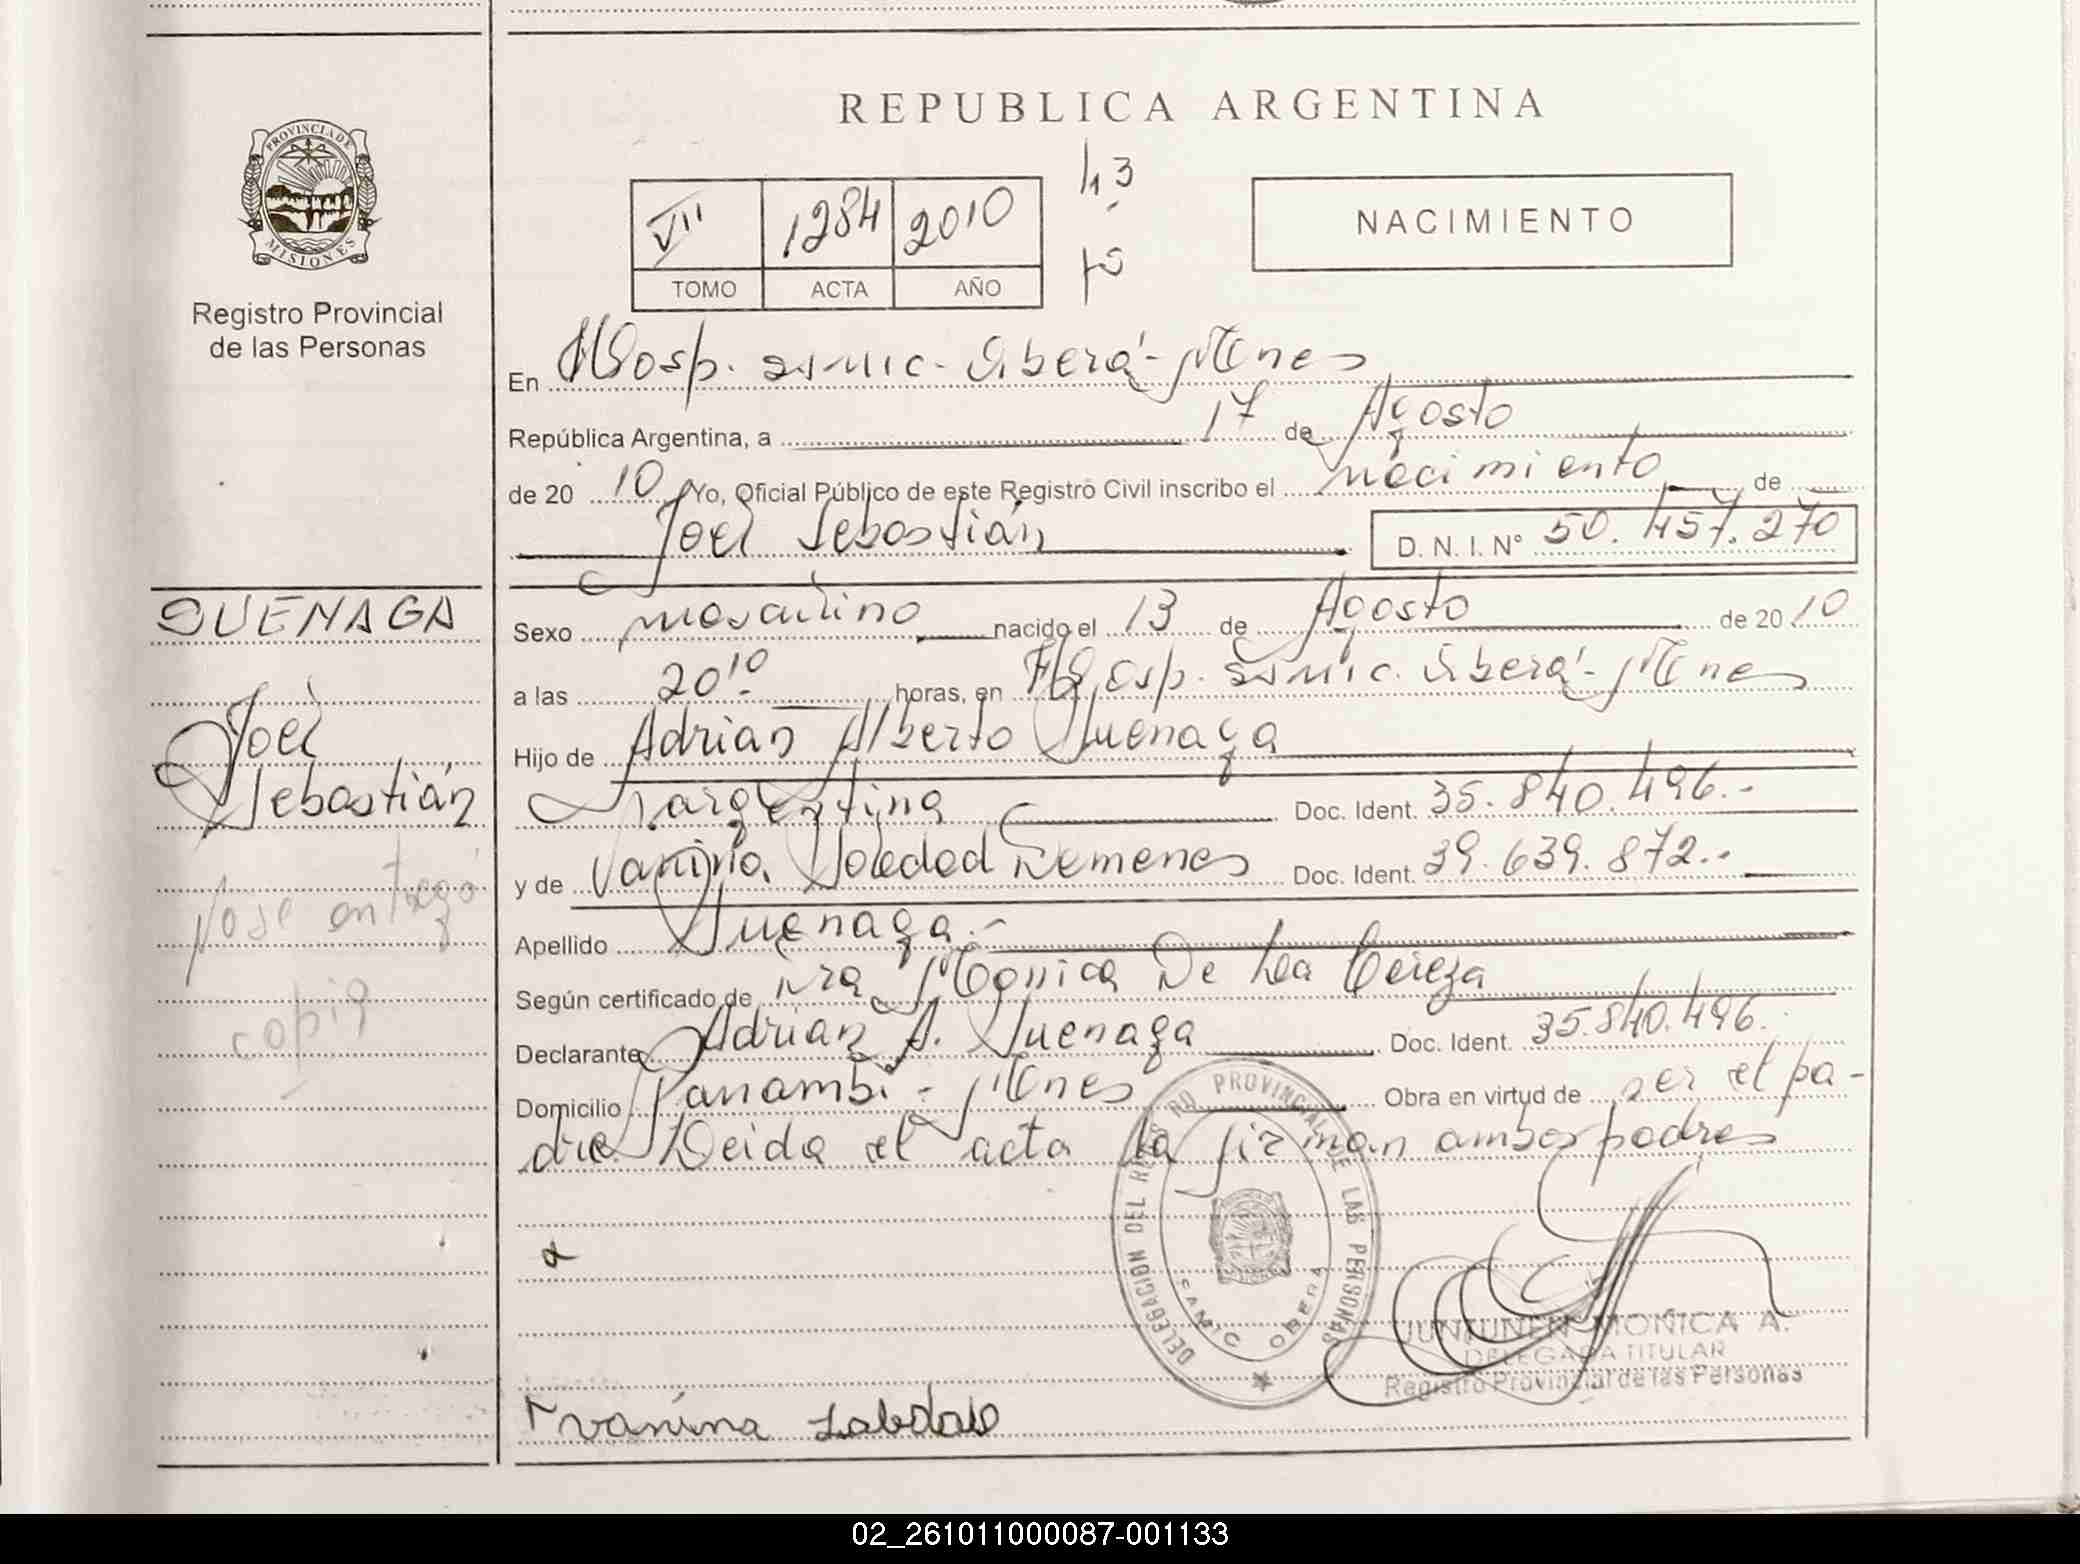 REPUBLICA ARGENTINA
PROVINCIA DE
MISIONES
Registro Provincial
de las Personas
VII 1284 2010
TOMO ACTA AÑO
43
NACIMIENTO
En Hosp. Samic. Oberá - Mnes
República Argentina, a 17 de Agosto
de 20 10 Yo, Oficial Público de este Registro Civil inscribo el nacimiento de
Joel Sebastián D. N. I. N° 50.457.270
SUENAGA
Sexo masculino nacido el 13 de Agosto de 20 10
a las 20¹⁰ horas, en Hosp. Samic. Oberá - Mnes
Joel
Sebastián
Hijo de Adrian Alberto Suenaga
argentina Doc. Ident. 35.840.496.-
y de Vanina Soledad Demenes Doc. Ident. 39.639.872.-
No se entregó
copia
Apellido Suenaga.-
Según certificado de Dra Mónica De La
Declarante Adrian A. Suenaga Doc. Ident. 35.840.496.
Domicilio Panambí - Mnes Obra en virtud de ser el pa-
dre Leida el acta la firman ambos padres
DELEGACION DEL REGISTRO PROVINCIAL DE LAS PERSONAS
SAMIC OBERA
MONICA A.
DELEGADA TITULAR
Registro Provincial de las Personas
vanina
02_261011000087-001133